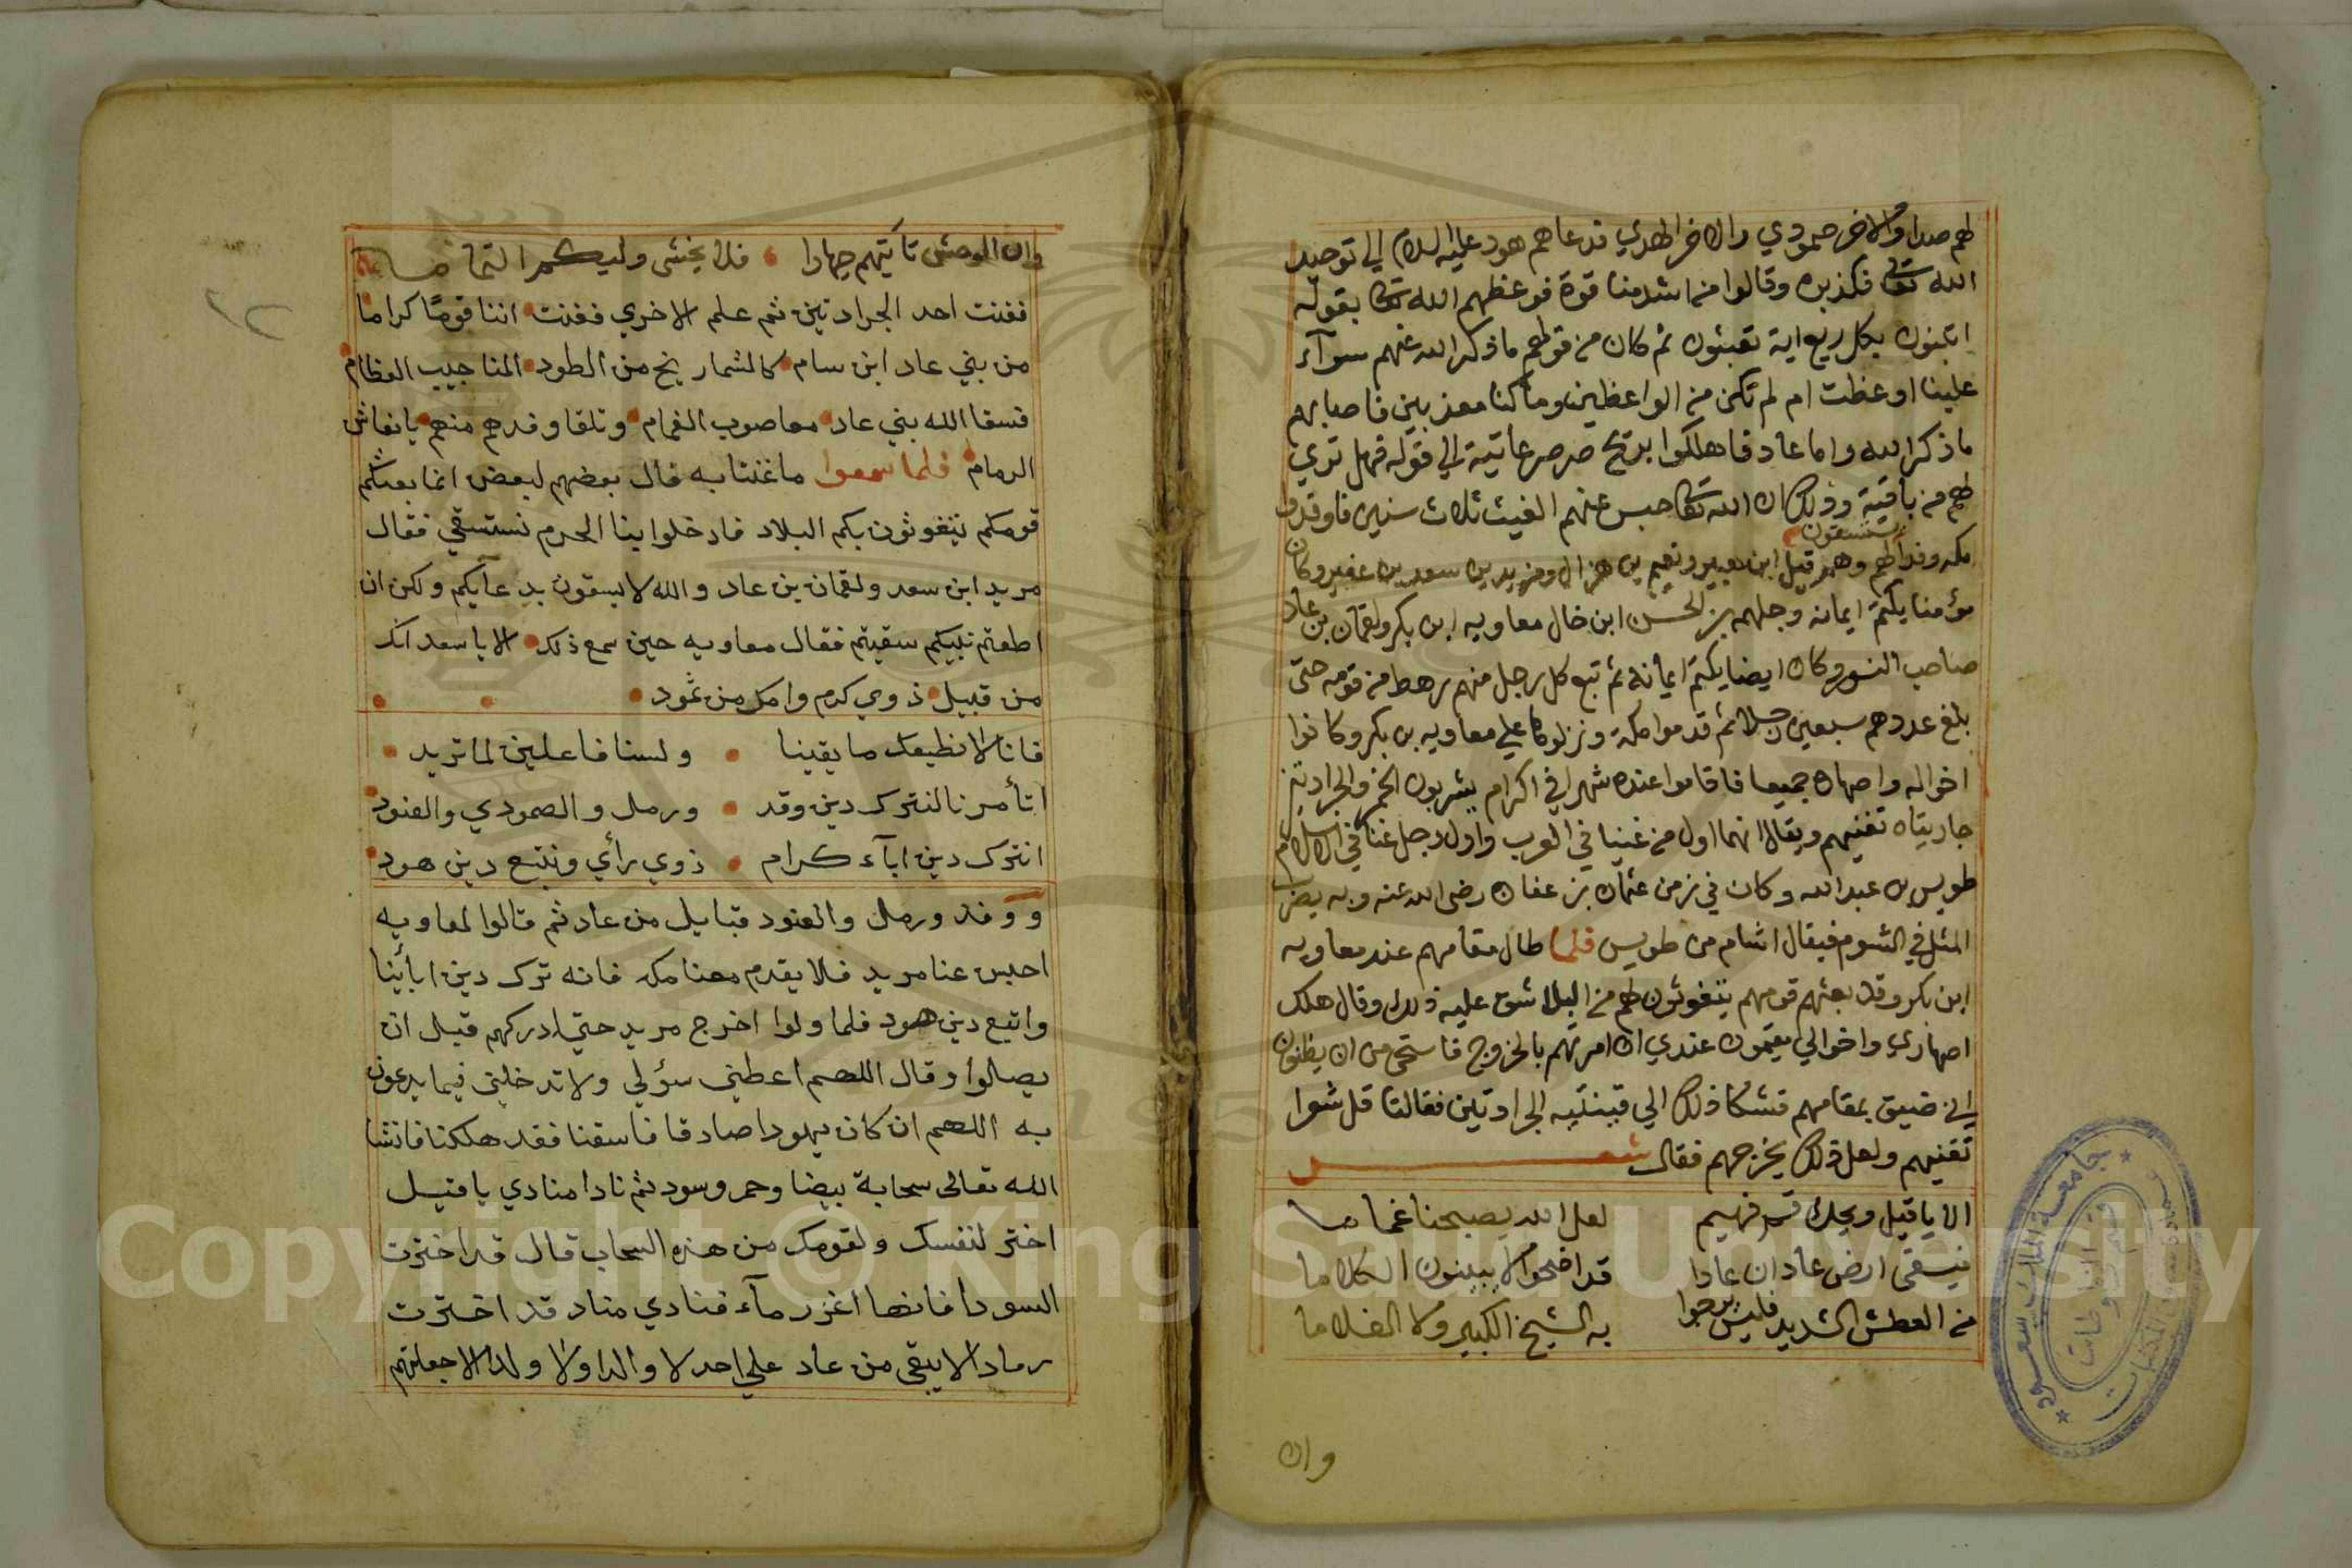 لهم صدا والاخر صمودي والاخر الهدي قد عاهم هود عليه السلام الي توحيد
الله تعالى فكذبوه وقالوا من اشد منا قوة فوعظهم الله تعالى بقوله
اتبنون بكل ريع اية تعبثون ثم كان من قولهم ما ذكر الله عنهم سوآء
علينا اوعظت ام لم تكن من الواعظين وما كنا معذبين فاصابهم
ما ذكر الله واما عاد فاهلكوا بريح صرصر عاتية الي قوله فهل تري
لهم من باقية وذلك ان الله تعالى حبس عنهم الغيث ثلاث سنين فاوفدوا
يستسقون
مكه وفدا لهم وهم قيل ابن عير ونعيم بن هزال ومزيد بن سعد بن عفير وكان
مؤمنا يكتم ايمانه وجلهمه بن الحسن ابن خال معاويه ابن بكر ولقمان بن عاد
صاحب النسور وكان ايضا يكتم ايمانه ثم تبع كل رجل منهم رهط من قومه حتى
بلغ عددهم سبعين رجلا ثم قدموا مكة ونزلوا علي معاويه بن بكر وكانوا
اخواله واصهاره جميعا فاقاموا عنده شهرا في اكرام يشربون الخمر والجرادتين
جاريتاه تغنيهم ويقال انهما اول من غنيا في العرب واول رجل غنا في الاسلام
طويس بن عبد الله وكان في زمن عثمان بن عفان رضى الله عنه وبه يضرب
المثل في الشوم فيقال اشام من طويس فلما طال مقامهم عند معاويه
ابن بكر وقد بعثهم قومهم يتغوثون لهم من البلا شق عليه ذلك وقال هلك
اصهاري واخوالي مقيمون عندي ان امرتهم بالخروج فاستحى من ان يظنون
اني ضيق بمقامهم فشكا ذلك الي قينتيه الجرادتين فقالتا قل شوا
تغنيهم ولعل ذلك يخرجهم فقال شعر
الا يا قيل ويحك قم فهيم لعل الله يصبحنا غماما
فيسقى ارض عاد ان عادا قد اضحوا لا يبينون الكلاما
من العطش الشديد فليس يرجوا به الشيخ الكبير ولا الغلاما
وان
وان الوحش تأتيهم جهارا فلا يخشى
فغنت احد الجرادتين ثم علم الاخري فغنت اننا قومًا كراما
من بني عاد ابن سام كالشماريخ من الطود المناجيب العظام
فسقا الله بني عاد معا صوب الغمام وتلقا وفدهم منهم بانعاش
الرمام فلما سمعوا ما غنتا به قال بعضهم لبعض انما بعثكم
قومكم يتغوثون بكم البلاد فادخلوا بنا الحرم نستسقي فقال
مريد ابن سعد ولقمان بن عاد والله لا يسقون بدعآيكم ولكن ان
اطعتم نبيكم سقيتم فقال معاويه حين سمع ذلك الا يا سعد انك
من قبيل ذوي كرم وامك من ثمود
فانا لا نطيعك ما بقينا ولسنا فاعلين لما تريد
اتأمرنا لنترك دين وفد ورمل والصمودي والعنود
انترك دين ابآء كرام ذوي رأي ونتبع دين هود
ووفد ورمل والعنود قبايل من عاد ثم قالوا لمعاويه
احبس عنا مريد فلا يقدم معنا مكه فانه ترك دين ابأينا
واتبع دين هود فلما ولوا اخرج مريد حتى ادركهم قبل ان
يصلوا وقال اللهم اعطني سؤلي ولا تدخلني فيما يدعون
به اللهم ان كان يهودا صادقا فاسقنا فقد هلكنا فانشا
الله تعالى سحابة بيضا وحمر وسود ثم نادا منادي يا قيل
اختر لنفسك ولقومك من هذه السحاب قال قد اخترت
السودا فانها اغزر مآء فنادي مناد قد اخترت
رمادا لا يبقى من عاد علي احد لا والدا ولا ولدا الا جعلتهم
٢٢
جامعة الملك سعود
Copyright © King Saud University